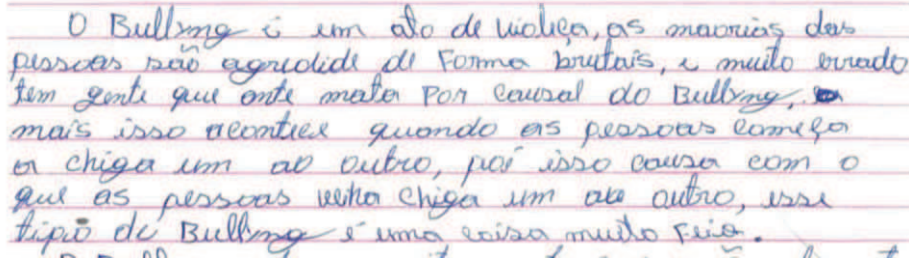 O Bullyng é um ato de violiça, as maoriais das
pessoas são agredide de Forma brutais, é muito errado
tem gente que ante mata Por causal do Bullyng,
mais isso acontece quando as pessoas começa
a chiga um ao outro, poi isso causa com o
que as pessoas venha chiga um ao outro, esse
tipio de Bullyng é uma coisa muito Feia.